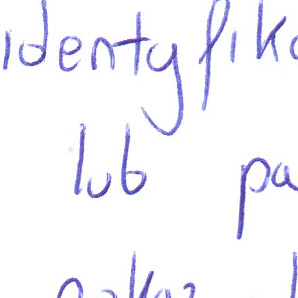 identyfika
lub pa